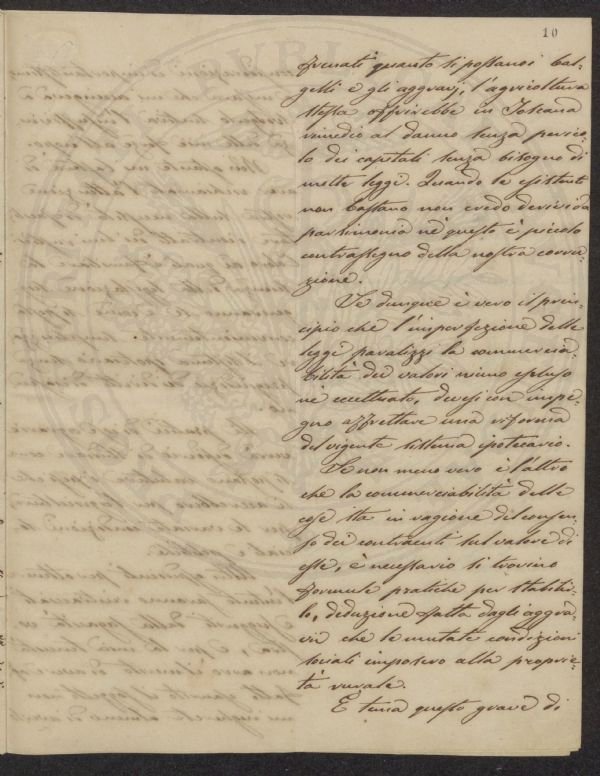 10
frenati quanto si possano i bal-
zelli e gli aggravj, l'agricoltura
stessa offrirebbe in Toscana
rimedio al danno senza perico-
lo dei capitali senza bisogno di
molte leggi. Quando le esistenti
non bastano non credo derivi da
parsimonia nè questo è piccolo
contrassegno della nostra corru-
zione.
Se dunque è vero il prin-
cipio che l'imperfezione delle
leggi paralizzi la commercia-
bilità dei valori niuno escluso
nè eccettuato, devesi con impe-
gno affrettare una riforma
del vigente sistema ipotecario.
Se non meno vero è l'altro
che la commerciabilità delle
cose sta in ragione del consen-
so dei contraenti sul valore di
esse, è necessario si trovino
formule pratiche per stabilir-
lo, deduzione fatta dagli aggra-
vii che le mutate condizioni
sociali imposero alla proprie-
tà rurale.
E tema questo grave di